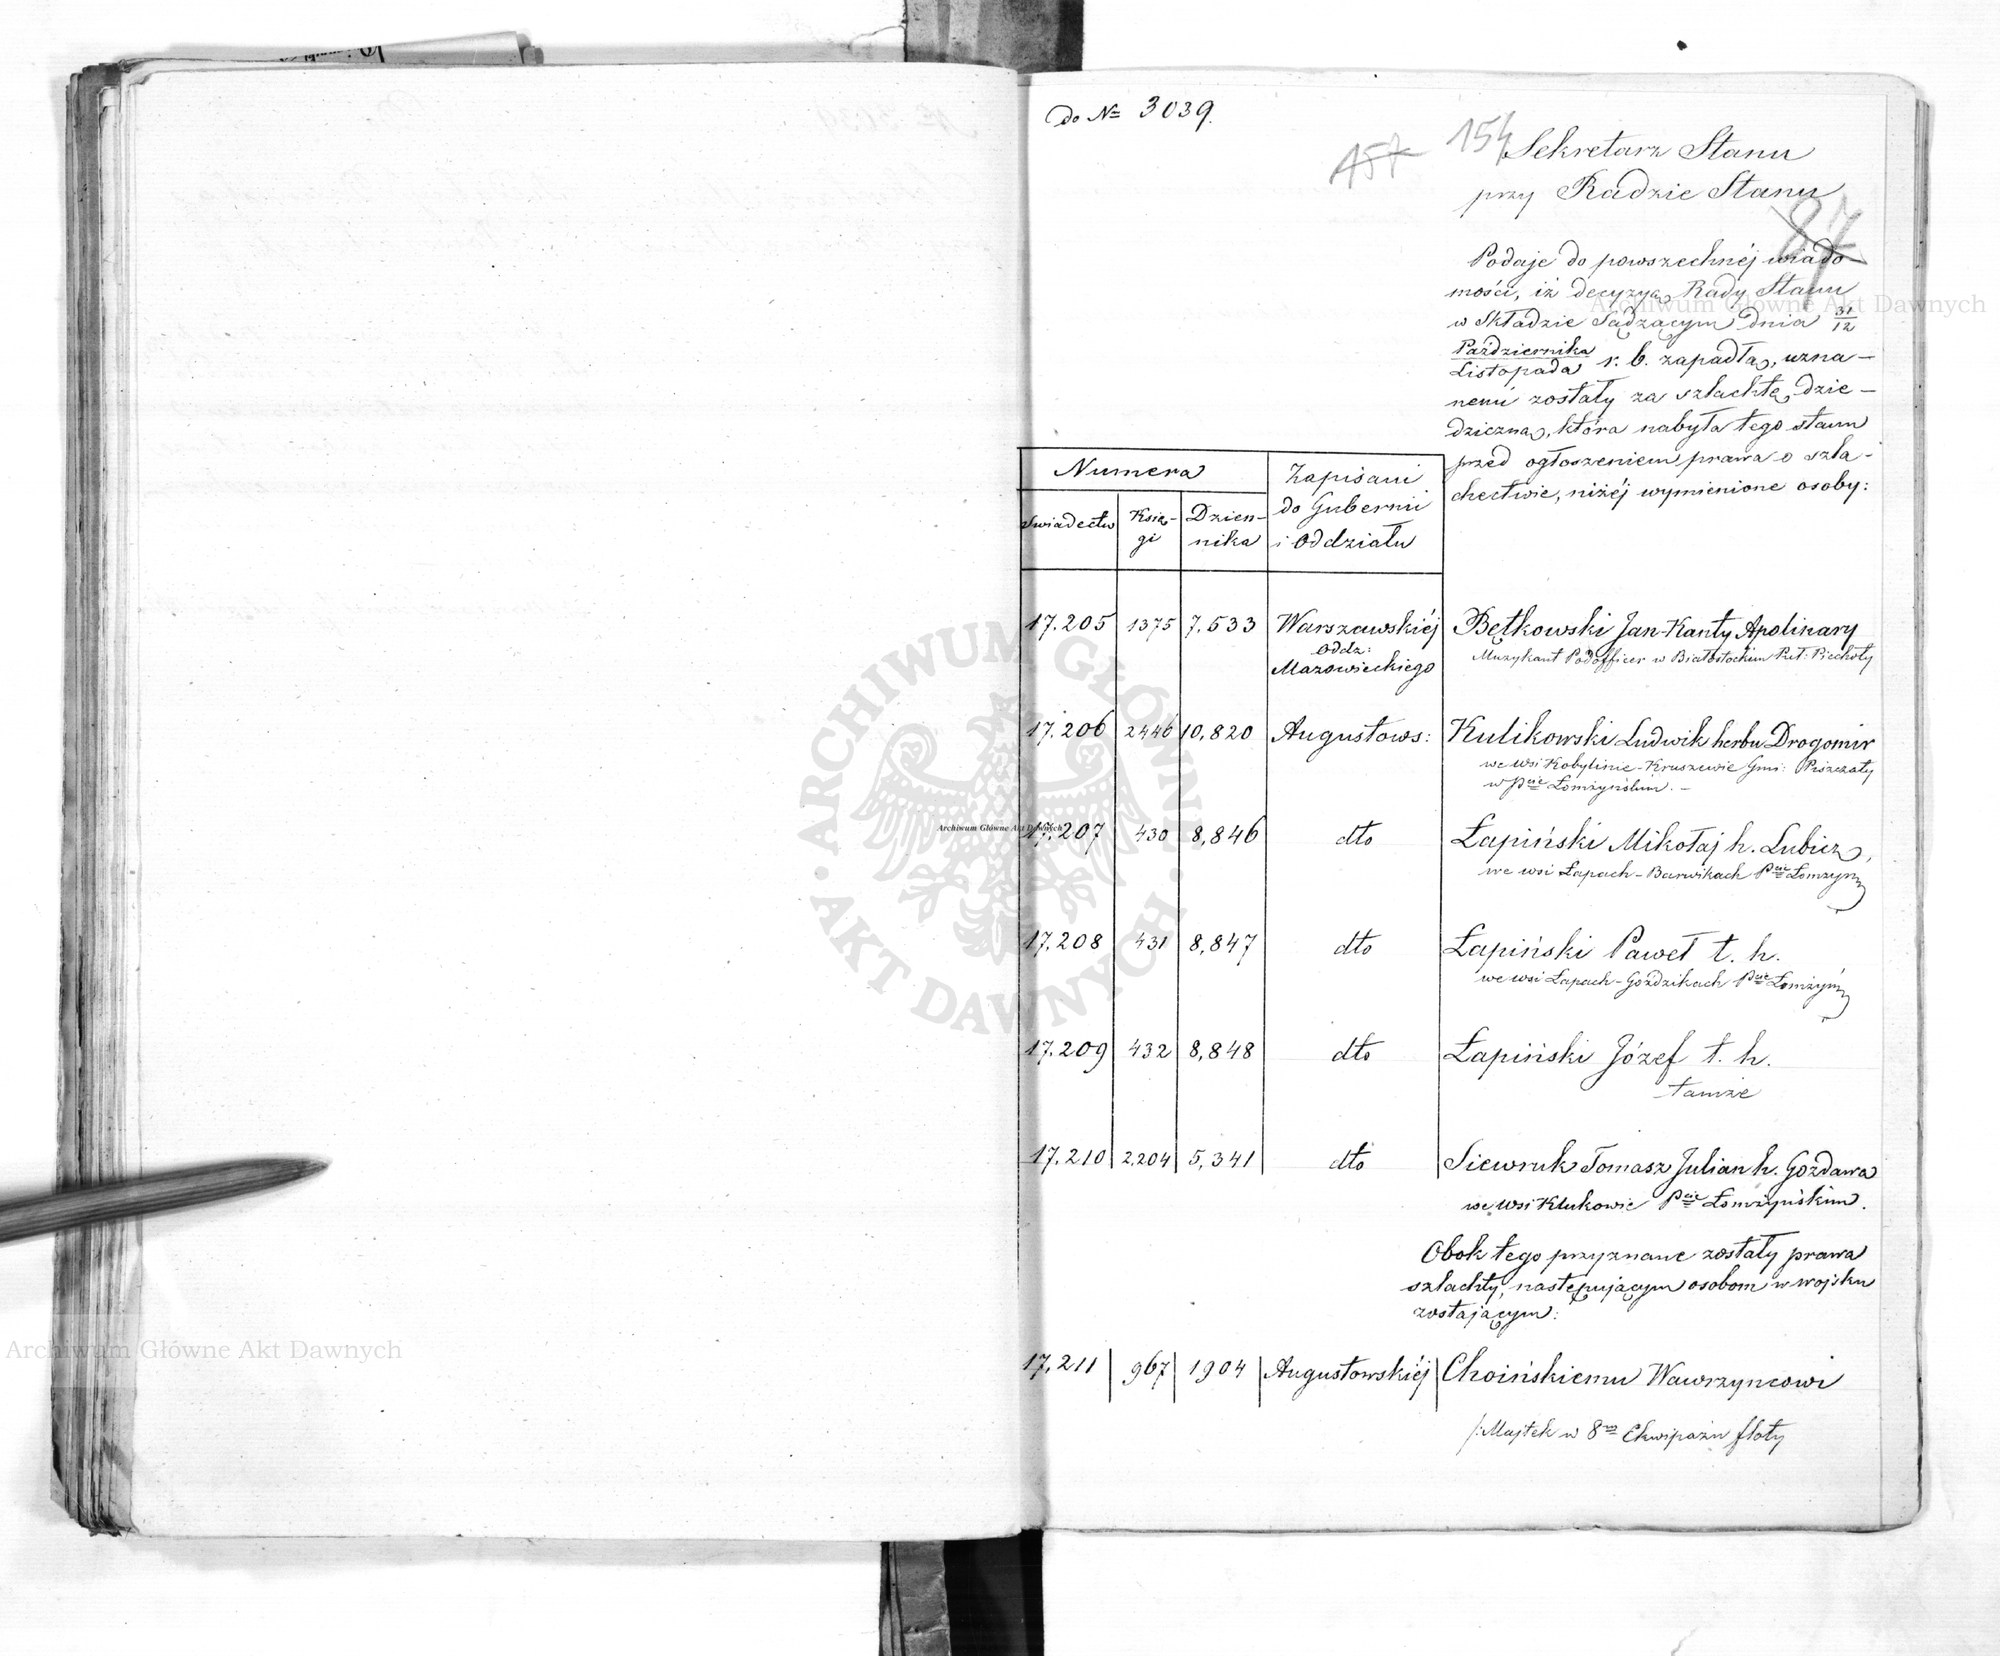 do № 3039.
157
154
Sekretarz Stanu
przy Radzie Stanu
87
Podaje do powszechnéj wiado
mości, iż decyzyą Rady Stanu
w Składzie Sądzącym dnia 31/12
Października/Listopada r. b. zapadłą, uzna-
nemi zostały za szlachtę dzie-
dziczną, która nabyła tego stanu
przed ogłoszeniem prawa o szla-
chectwie, niżéj wymienione osoby:
Numera
Zapisani
do Gubernii
i Oddziału
Swiadectw
Księ-
gi
Dzien-
nika
17.205 1375 7,533 Warszawskiéj Bętkowski Jan-Kanty Apolinary
Oddz:
Mazowieckiego
Muzykant Podofficer w Białostockim Puł: Piechoty
17.206 2446 10,820 Augustows: Kulikowski Ludwik herbu Drogomir
we wsi Kobylinie-Kruszewie Gmi: Piszczaty
w Pcie Łomżyńskim. -
17.207 430 8,846 dto Łapiński Mikołaj h. Lubicz,
we wsi Łapach-Barwikach Pcie Łomżyń
17.208 431 8,847 dto Łapiński Paweł t. h.
we wsi Łapach-Goździkach Pcie Łomżyń
17.209 432 8,848 dto Łapiński Józef t. h.
tamże
17.210 2,204 5,341 dto Siewruk Tomasz Julian h. Gozdawa
we wsi Klukowie Pcie Łomżyńskim.
Obok tego przyznane zostały prawa
szlachty, następującym osobom w wojsku
zostającym:
17.211 967 1904 Augustowskiéj Choińskiemu Wawrzyncowi
/: Majtek w 8m Ekwipażu floty
Archiwum Główne Akt Dawnych
Archiwum Główne Akt Dawnych
Archiwum Główne Akt Dawnych
ARCHIWUM GŁÓWNE
AKT DAWNYCH